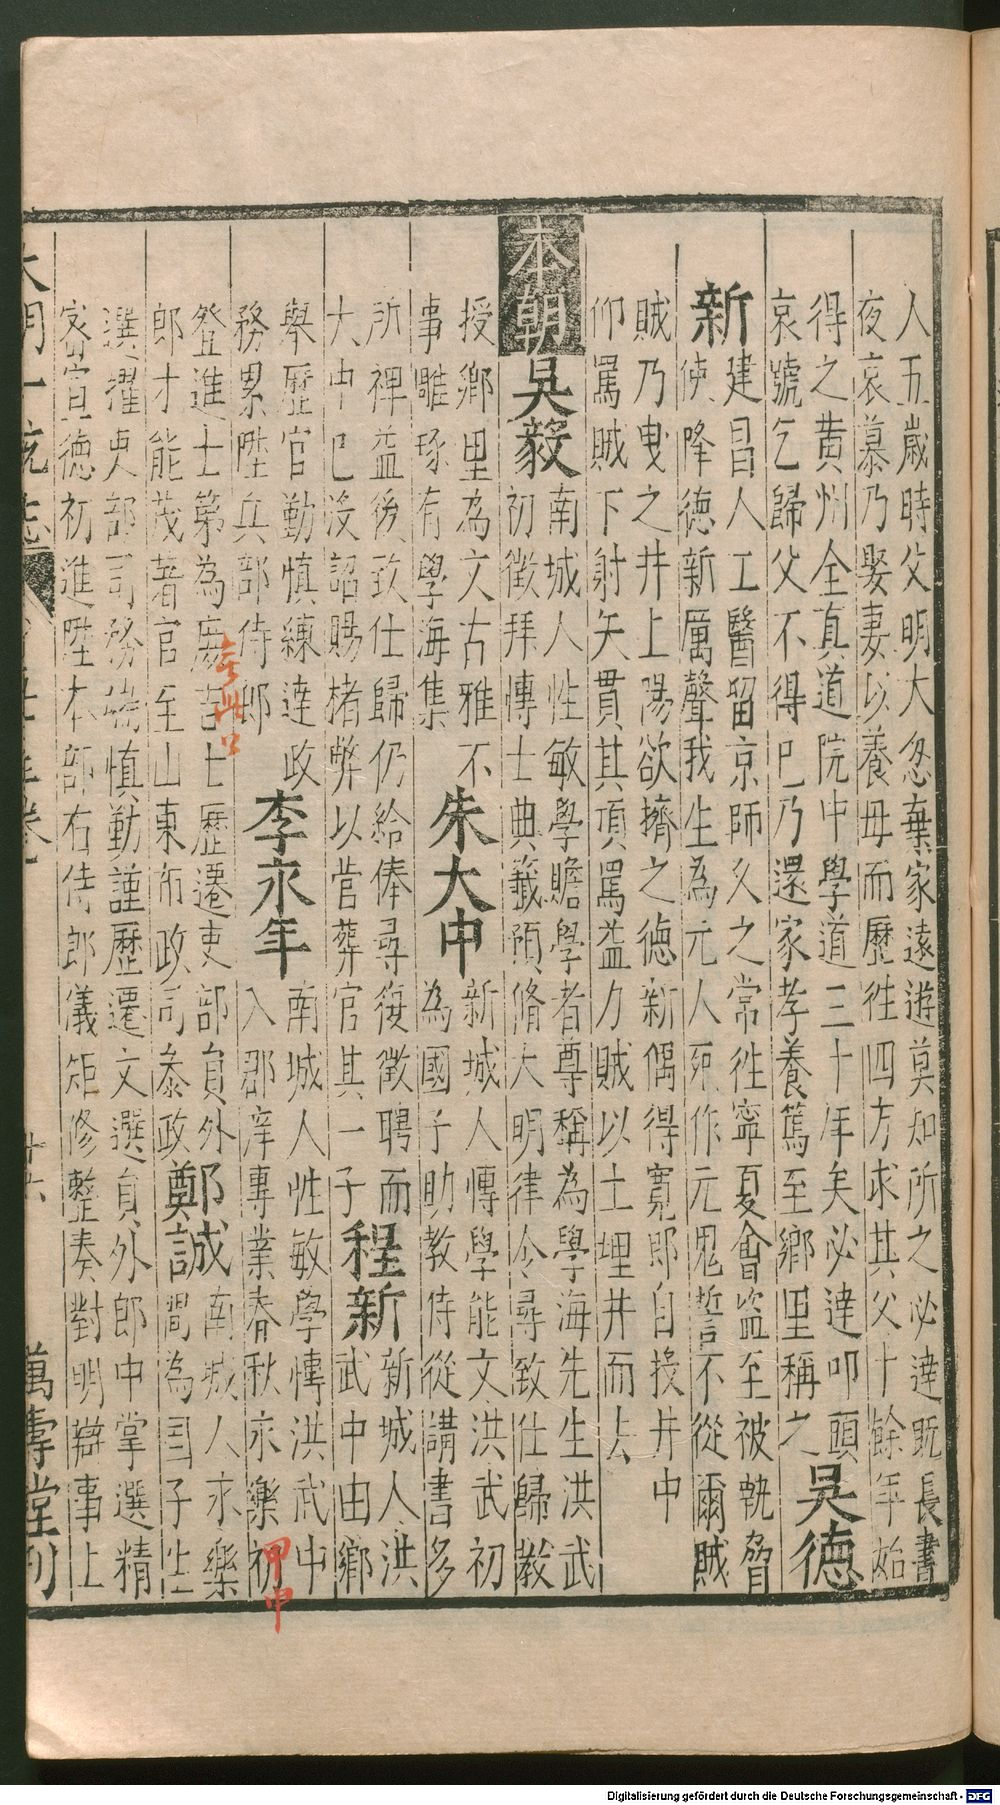 人五歲時父明大忽棄家遠遊莫知所之必達既長書
夜哀慕乃娶妻以養母而歷往四方求其父十餘年始
得之黃州全真道院中學道三十年矣必達叩頭
哀號乞歸父不得已乃還家孝養篤至鄉里稱之
吳德
新
建昌人工醫留京師久之常往寧夏會盜至被執脅
使降德新厲聲我生為元人死作元鬼誓不從爾賊
賊乃曳之井上陽欲擠之德新偶得寬即自投井中
仰罵賊下射矢貫其項罵益力賊以土埋井而去
本朝
吳毅
南城人性敏學贍學者尊稱為學海先生洪武
初徵拜博士典籤預脩大明律令尋致仕歸教
授鄉里為文古雅不
事雕琢有學海集
朱大中
新城人博學能文洪武初
為國子助教侍從講書多
所裨益後致仕歸仍給俸尋復徵聘而
大中已沒詔賜楮弊以營葬官其一子
程新
新城人洪
武中由鄉
舉歷官勤慎練達政
務累陞兵部侍郎
李永年
南城人性敏學博洪武中
入郡庠專業春秋永樂初
甲申
登進士第為庶吉士歷遷吏部員外
郎才能茂著官至山東布政司叅政
鄭誠
南城人永樂
間為國子生
選擢吏部司務端慎勤謹歷遷文選員外郎中掌選精
密宣德初進陞本部右侍郎儀矩修整奏對明辯事上
大明一統志
卷
十六
萬壽堂刊
Digitalisierung gefördert durch die Deutsche Forschungsgemeinschaft - DFG